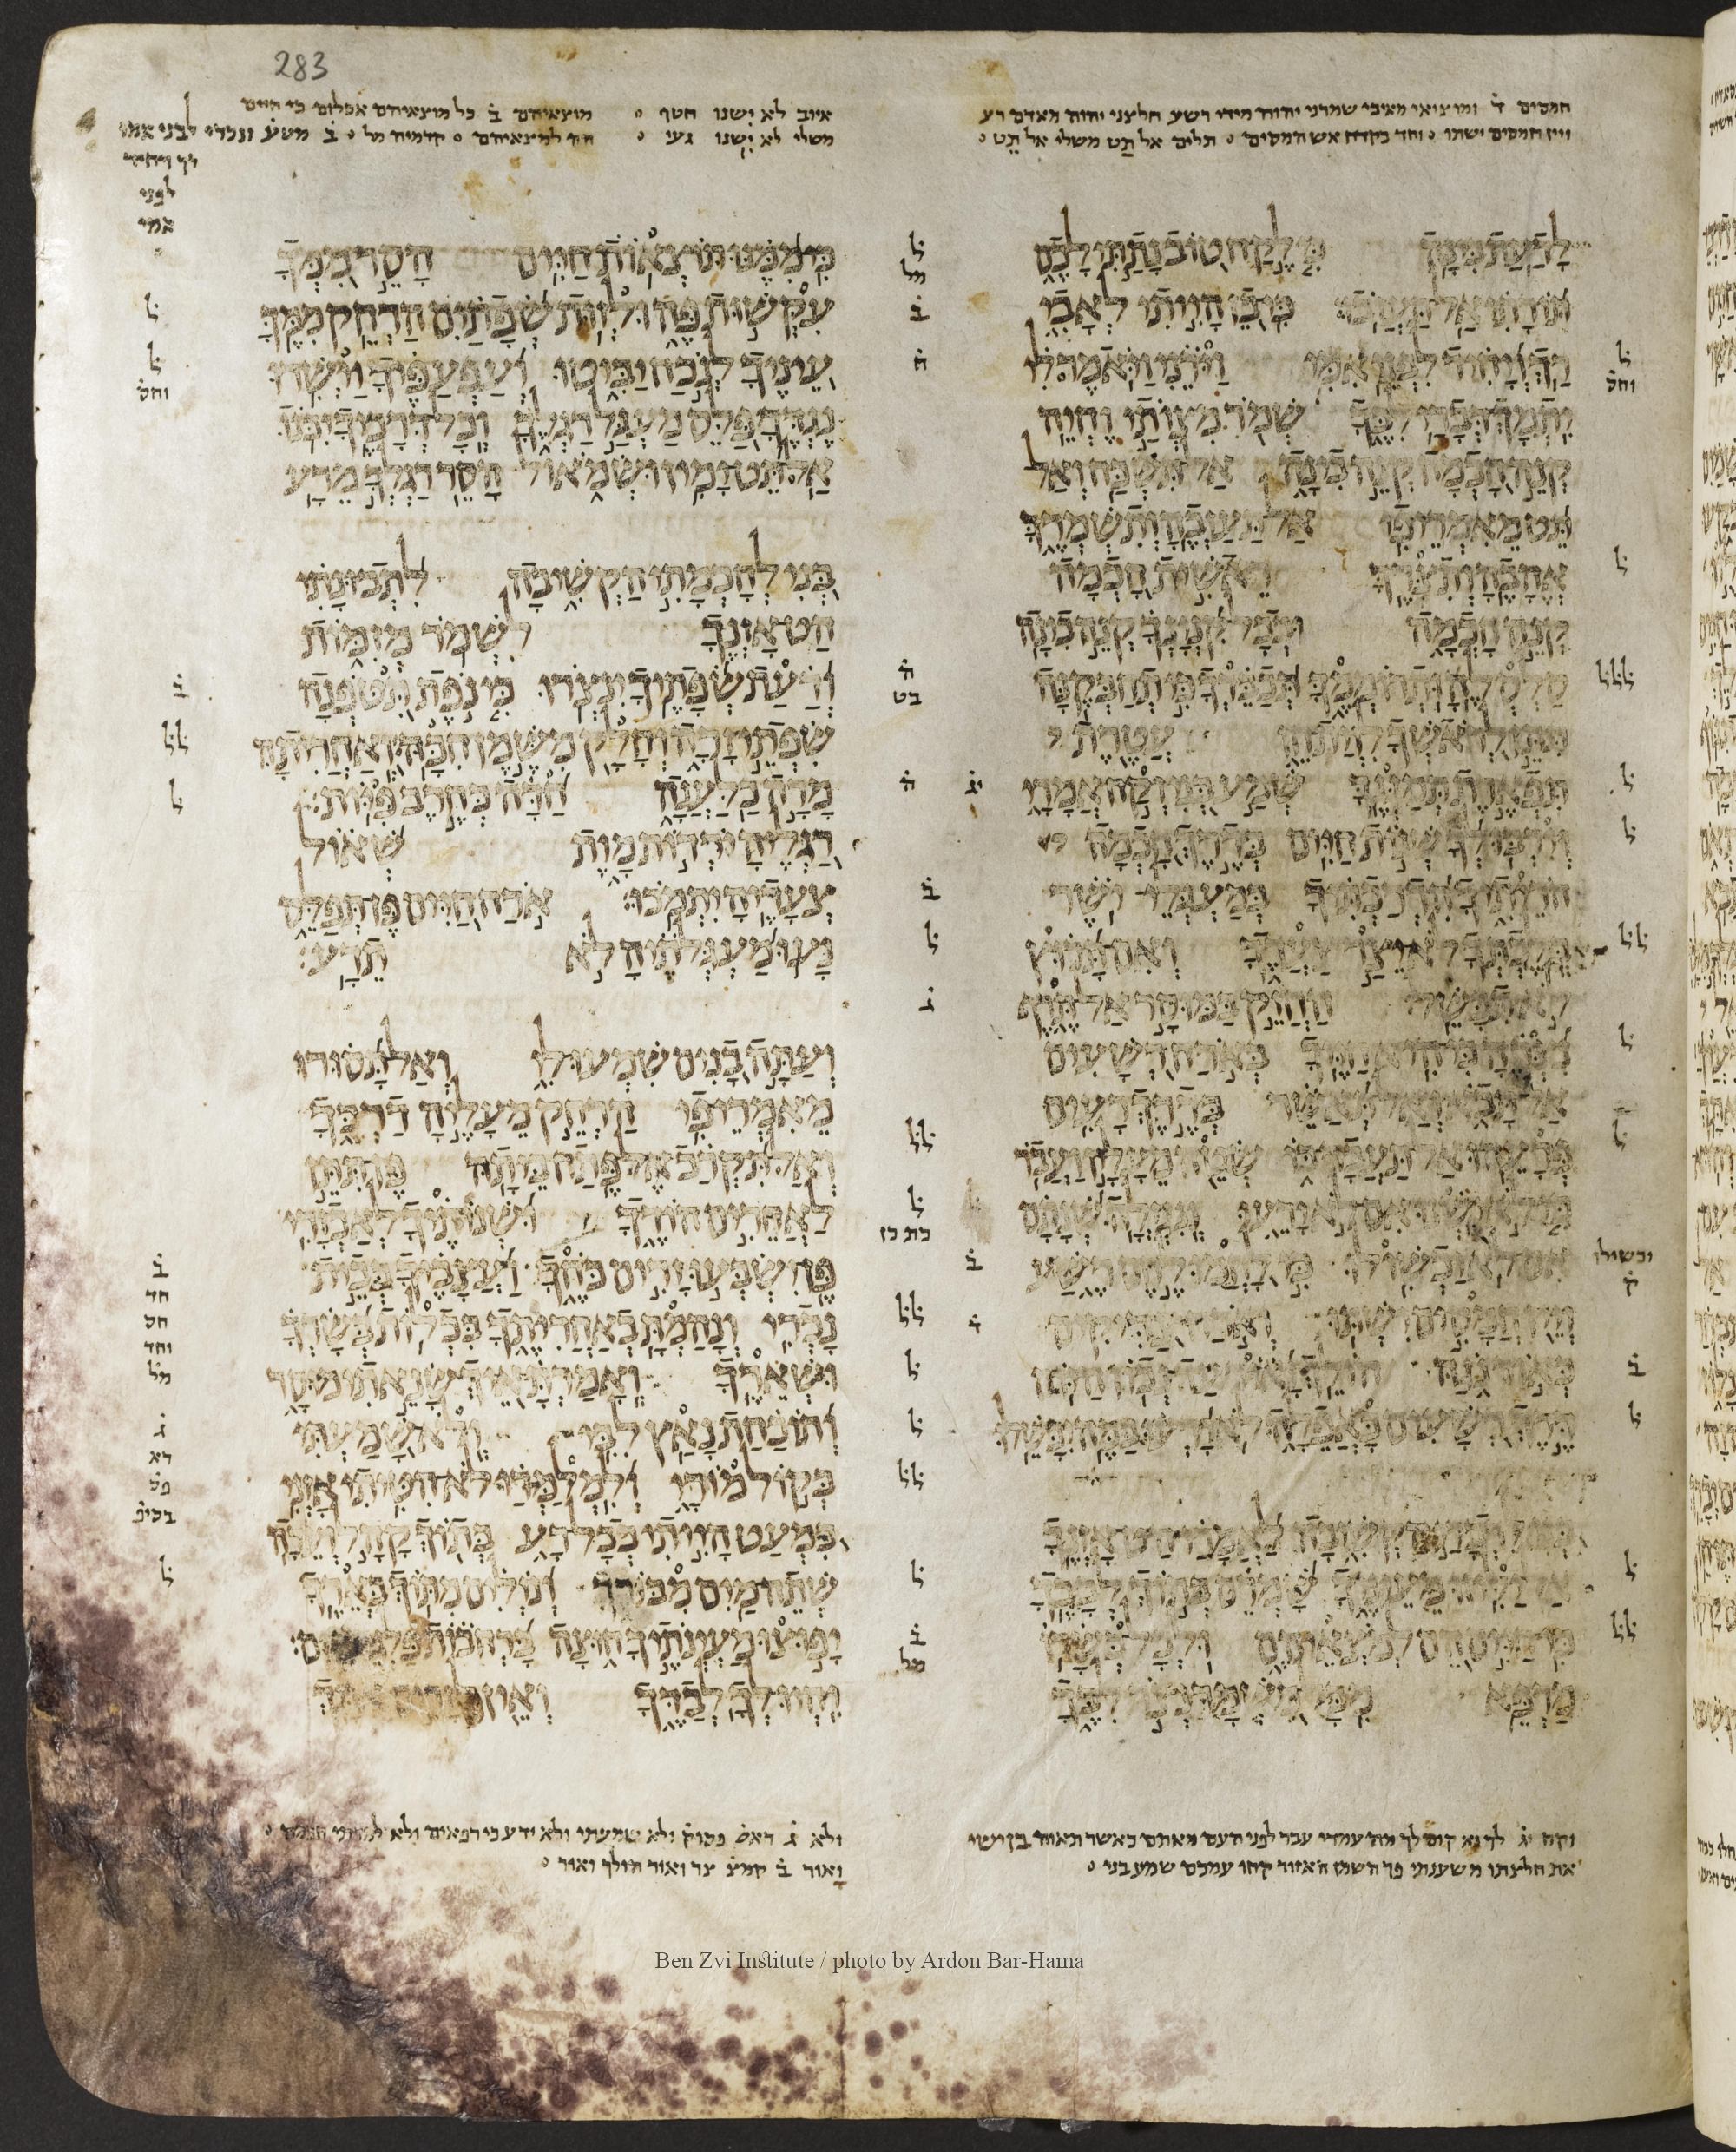 חמסים ד ומוציאי מאיבי שמרני יהוה מידי רשע חלצני יהוה מאדם רע
ויין חמסים ישתו ○ וחד בקדח אש המסים ○ תלים אל תַט משלי אל תֵט ○
איוב לא ישנו חטף ○ מוצאיהם ב כל מוצאיהם אכלום כי חיים
משלי לא ישנו געי ○ הם למצאיהם ○ קדמיה מל ○ ב מטע ונכרי לבני אמי
רך ויחיד
לפני
אמי
לדעת בינה כי לקח טוב נתתי לכם
תורתי אל תעזבו כי בן הייתי לאבי
רך ויחיד לפני אמי וירני ויאמר לי
יתמך דברי לבך שמר מצותי וחיה
קנה חכמה קנה בינה אל תשכח ואל
תט מאמרי פי אל תעזבה ותשמרך
אהבה ותצרך ראשית חכמה
קנה חכמה ובכל קנינך קנה בינה
סלסלה ותרוממך תכבדך כי תחבקנה
תתן לראשך לוית חן עטרת
תפארת תמגנך שמע בני וקח אמרי
וירבו לך שנות חיים בדרך חכמה
הריתיך הדרכתיך במעגלי ישר
בלכתך לא יצר צעדך ואם תרוץ
לא תכשל החזק במוסר אל תרף
נצרה כי היא חייך בארח רשעים
אל תבא ואל תאשר בדרך רעים
פרעהו אל תעבר בו שטה מעליו ועבר
כי לא ישנו אם לא ירעו ונגזלה שנתם
אם לא יכשולו כי לחמו לחם רשע
ויין חמסים ישתו וארח צדיקים
כאור נגה הולך ואור עד נכון היום
דרך רשעים כאפלה לא ידעו במה יכשלו
בני לדברי הקשיבה לאמרי הט אזנך
אל יליזו מעיניך שמרם בתוך לבבך
כי חיים הם למצאיהם ולכל בשרו
מרפא מכל משמר נצר לבך
כי ממנו תוצאות חיים הסר ממך
עקשות פה ולזות שפתים הרחק ממך
עיניך לנכח יביטו ועפעפיך יישרו
נגדך פלס מעגל רגלך וכל דרכיך יכנו
אל תט ימין ושמאול הסר רגלך מרע
בני לחכמתי הקשיבה לתבונתי
הט אזנך לשמר מזמות
ודעת שפתיך ינצרו כי נפת תטפנה
שפתי זרה וחלק משמן חכה ואחריתה
מרה כלענה חדה כחרב פיות
רגליה ירדות מות שאול
צעדיה יתמכו ארח חיים פן תפלס
נעו מעגלתיה לא תדע
ועתה בנים שמעו לי ואל תסורו
מאמרי פי הרחק מעליה דרכך
ואל תקרב אל פתח ביתה פן תתן
לאחרים הודך ושנתיך לאכזרי
פן ישבעו זרים כחך ועצביך בבית
נכרי ונהמת באחריתך בכלות בשרך
ושארך ואמרת איך שנאתי מוסר
ותוכחת נאץ לבי ולא שמעתי
בקול מורי ולמלמדי לא הטיתי אזני
כמעט הייתי בכל רע בתוך קהל ועדה
שתה מים מבורך ונזלים מתוך בארך
יפוצו מעינתיך חוצה ברחבות פלגי מים
יהיו לך לבדך ואין לזרים אתך
וקח יג לך נא קום לך מזה עמדי עבר לפני העם מאתם כאשר תאוה בן ישי
את חלצתו משענתי פך השמן האזור קחו עמכם שמע בני ○
ולא ג ראש פסוק ולא שמעתי ולא ידע כי רפאים ולא למדתי חכמה ○
ואור ב קמצ צר ואור הולך ואור ○
283
Ben Zvi Institute / photo by Ardon Bar-Hama